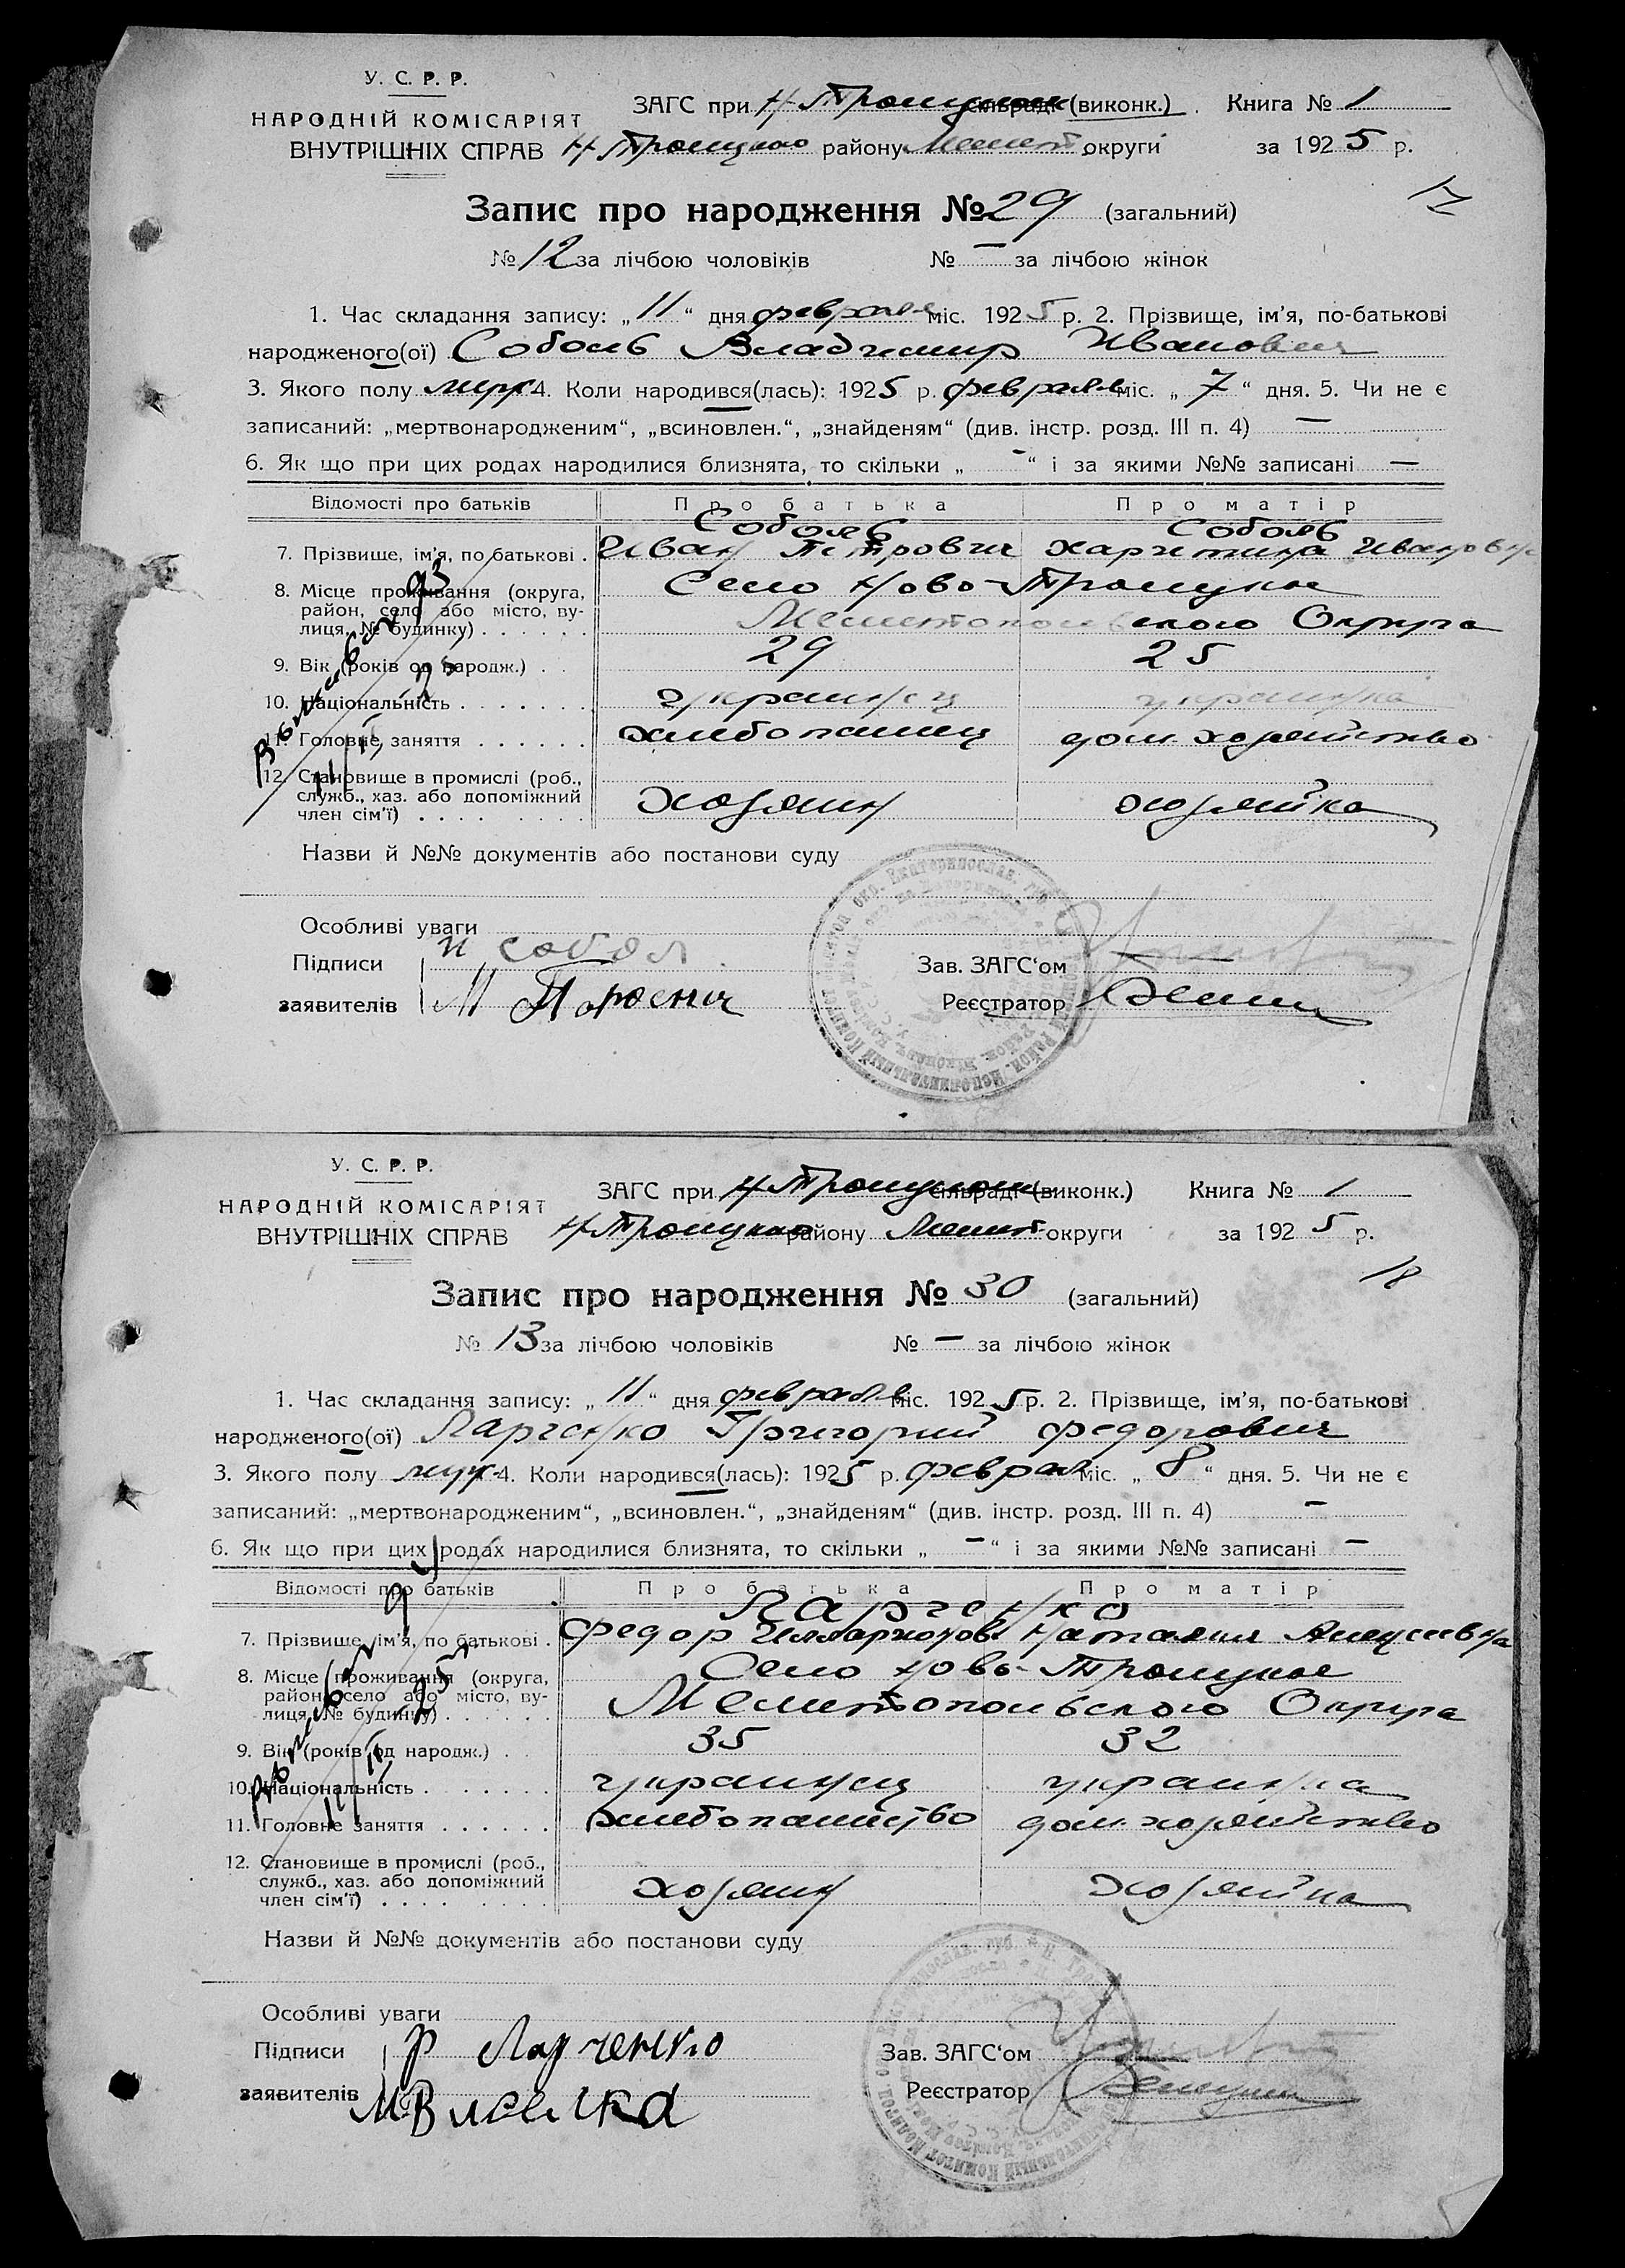 У. С. Р. Р.
НАРОДНІЙ КОМІСАРІЯТ
ВНУТРІШНІХ СПРАВ
ЗАГС при Н Троицком сільраді (виконк.) Книга № 1
Н Троицкого району Мелит округи за 1925 р.
17
Запис про народження № 29 (загальний)
№ 12 за лічбою чоловіків № — за лічбою жінок
1. Час складання запису: „ 11 “ дня февраля міс. 1925 р. 2. Прізвище, ім’я, по-батькові
народженого(ої) Соболь Владимир Иванович
3. Якого полу муж 4. Коли народився(лась): 1925 р. февраля міс. „ 7 “ дня. 5. Чи не є
записаний: „мертвонародженим“, „всиновлен.“, „знайденям“ (див. інстр. розд. III п. 4) —
6. Як що при цих родах народилися близнята, то скільки „ - “ і за якими №№ записані —
Відомості про батьків Про батька Про матір
Соболь Соболь
7. Прізвище, ім’я, по батькові . Иван Петрович Харитина Ивановна
8. Місце проживання (округа, Село Ново-Троицкое
район, село або місто, ву-
лиця, № будинку) . . . . . . Мелитопольского Округа
9. Вік (років од народж.) . . 29 25
10. Національність . . . . . . . украинец украинка
11. Головне заняття . . . . . . хлебопашец дом. хозяйство
12. Становище в промислі (роб.,
служб., хаз. або допоміжний хозяин хозяйка
член сім’ї) . . . . . . . .
Назви й №№ документів або постанови суду
Особливі уваги
Підписи и собол
заявителів М
Зав. ЗАГС‘ом
Реєстратор
У. С. Р. Р.
НАРОДНІЙ КОМІСАРІЯТ
ВНУТРІШНІХ СПРАВ
ЗАГС при Н Троицком сільраді (виконк.) Книга № 1
Н Троицкого району Мелит округи за 1925 р.
18
Запис про народження № 30 (загальний)
№ 13 за лічбою чоловіків № — за лічбою жінок
1. Час складання запису: „ 11 “ дня февраля міс. 1925 р. 2. Прізвище, ім’я, по-батькові
народженого(ої) Ларченко Григорий Федорович
3. Якого полу муж 4. Коли народився(лась): 1925 р. февраля міс. „ 8 “ дня. 5. Чи не є
записаний: „мертвонародженим“, „всиновлен.“, „знайденям“ (див. інстр. розд. III п. 4) —
6. Як що при цих родах народилися близнята, то скільки „ — “ і за якими №№ записані —
Відомості про батьків Про батька Про матір
Ларченко
7. Прізвище, ім’я, по батькові . Федор Илларионов Наталия Алексеевна
8. Місце проживання (округа, Село Ново-Троицкое
район, село або місто, ву- Мелитопольского Округа
лиця, № будинку) . . . . . .
9. Вік (років од народж.) . . 35 32
10. Національність . . . . . . . украинец украинка
11. Головне заняття . . . . . . хлебопашество дом. хозяйство
12. Становище в промислі (роб.,
служб., хаз. або допоміжний хозяин хозяйка
член сім’ї) . . . . . . . .
Назви й №№ документів або постанови суду
Особливі уваги
Підписи Ларченко
заявителів
Зав. ЗАГС‘ом
Реєстратор